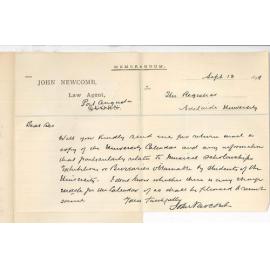 MEMORANDUM.
Sept 13
JOHN NEWCOMB,
Law Agent,
Port Augusta
The Registrar
Adelaide University
Dear Sir
Will you kindly send me per return mail a
copy of the University Calendar and any information
that particularly relate to Musical Scholarships
Exhibitions or Bursaries obtainable by students of the
University. I don't know whether there is any charge
made for the Calendar if so shall be pleased to remit
same.
Yours faithfully
John Newcomb